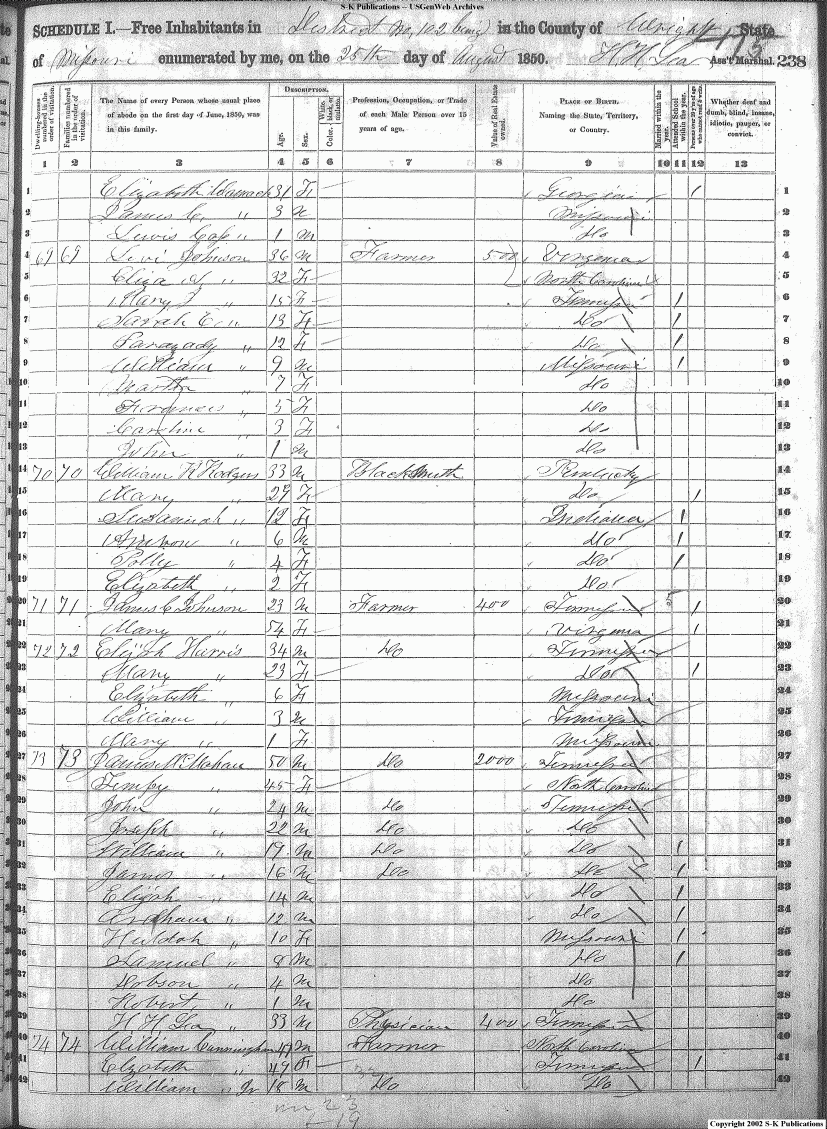 S-K Publications -- USGenWeb Archives
SCHEDULE I.—Free Inhabitants in District No, 102 being in the County of Wright State
of Missouri enumerated by me, on the 25th day of August 1850. H. H. Lea Ass't Marshal. 238
DESCRIPTION.
Dwelling-houses numbered in the order of visitation. Families numbered in the order of visitation. The Name of every Person whose usual place of abode on the first day of June, 1850, was in this family. Age. Sex. Color. White, black, or mulatto. Profession, Occupation, or Trade of each Male Person over 15 years of age. Value of Real Estate owned. PLACE OF BIRTH. Naming the State, Territory, or Country. Married within the year. Attended School within the year. Persons over 20 y'rs of age who cannot read & write. Whether deaf and dumb, blind, insane, idiotic, pauper, or convict.
1 2 3 4 5 6 7 8 9 10 11 12 13
1 Elizabeth 31 F Georgia 1 1
2 James C. " 3 M Missouri 2
3 Lewis " 1 M Do 3
4 69 69 Levi Johnson 36 M Farmer 500 Virginia 4
5 Eliza " 32 F North Carolina 5
6 Mary " 15 F Tennessee 1 6
7 Sarah E. " 13 F Do 1 7
8 " 12 F Do 1 8
9 William " 9 M Missouri 1 9
10 Martha " 7 F Do 10
11 Frances " 5 F Do 11
12 Caroline " 3 F Do 12
13 John " 1 M Do 13
14 70 70 William R Hodges 33 M Blacksmith Kentucky 14
15 Mary " 29 F Do 1 15
16 Susannah " 12 F Indiana 1 16
17 " 6 M Do 1 17
18 Polly " 4 F Do 1 18
19 Elizabeth " 2 F Do 19
20 71 71 James C Johnson 23 M Farmer 400 Tennessee 1 20
21 Mary " 54 F Virginia 1 21
22 72 72 Elijah Harris 34 M Do Tennessee 22
23 Mary " 23 F Do 1 23
24 Elizabeth " 6 F Missouri 24
25 William " 3 M Tennessee 25
26 Mary " 1 F Missouri 26
27 73 73 James McMahan 50 M Do 2000 Tennessee 27
28 " 45 F North Carolina 28
29 John " 24 M Do Tennessee 29
30 Joseph " 22 M Do Do 30
31 William " 19 M Do Do 1 31
32 James " 16 M Do Do 1 32
33 Elijah " 14 M Do 1 33
34 " 12 M Do 1 34
35 Huldah " 10 F Missouri 1 35
36 Samuel " 8 M Do 1 36
37 Dobson " 4 M Do 37
38 Robert " 1 M Do 38
39 H H Lea " 33 M Physician 400 Tennessee 39
40 74 74 William Cunningham 47 M Farmer North Carolina 40
41 Elizabeth " 47 F Tennessee 1 41
42 William " Jr 18 M Do Do 42
23
19
Copyright 2002 S-K Publications